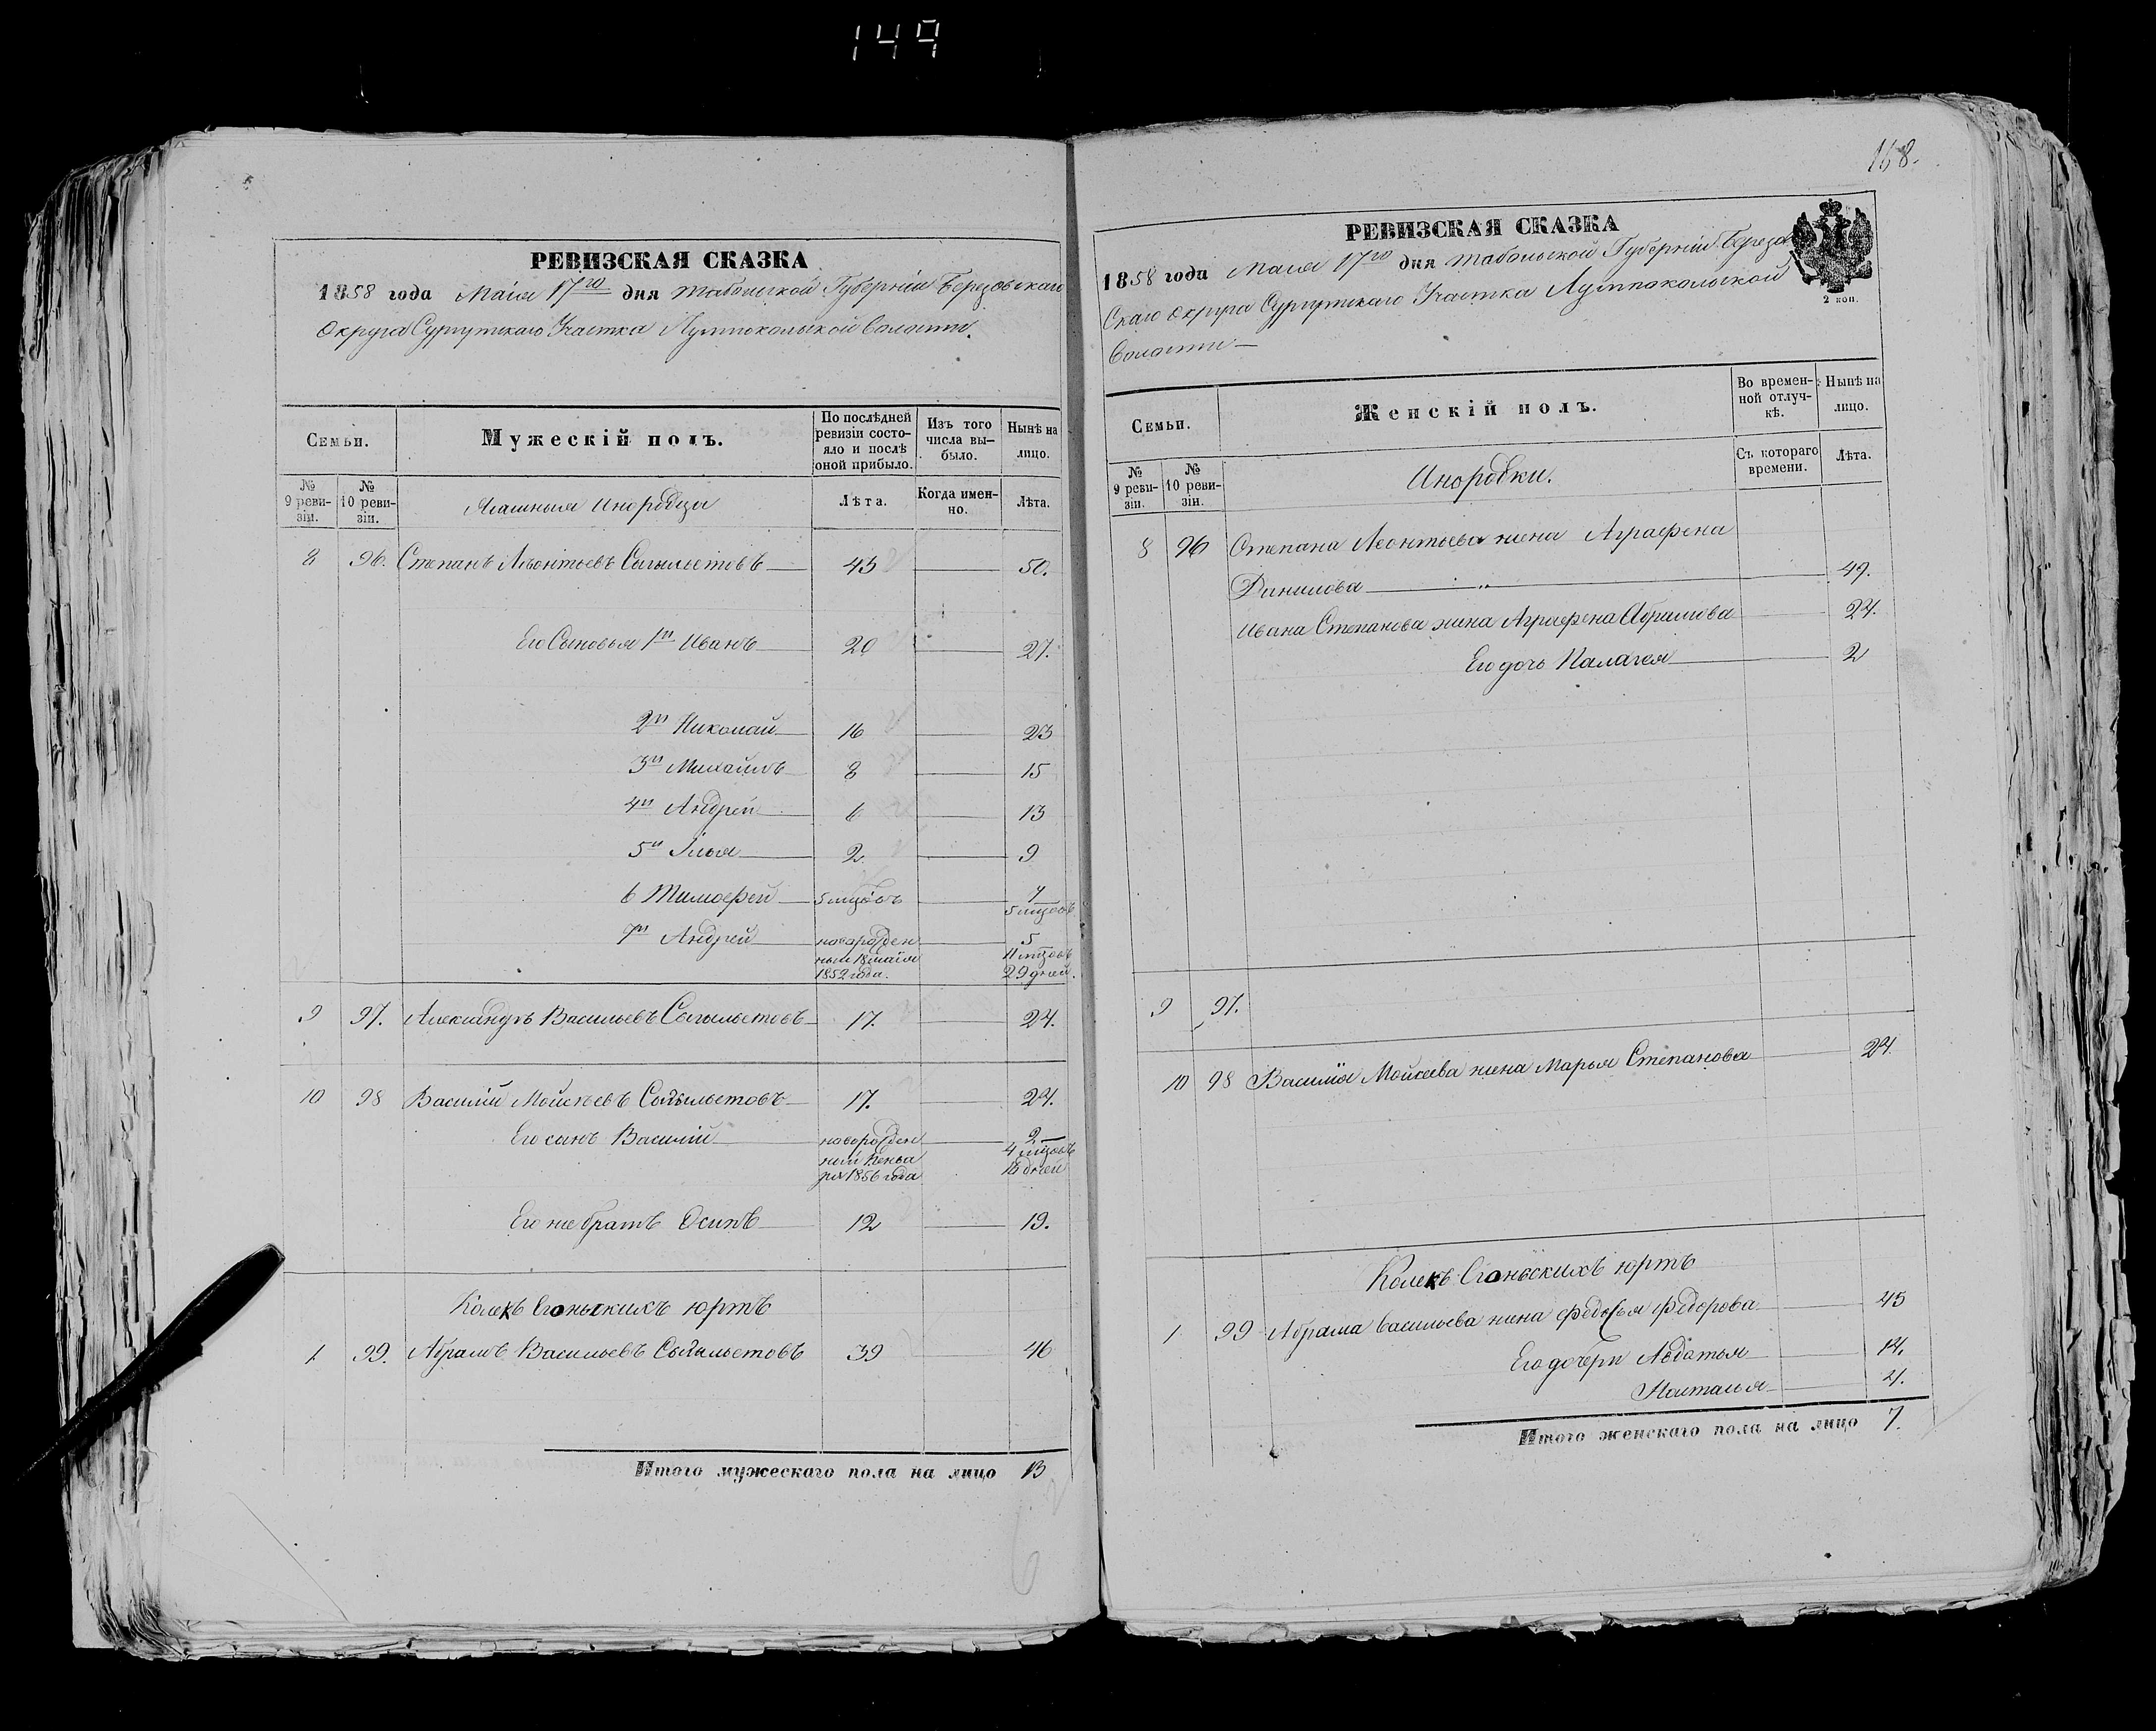 149
РЕВИЗСКАЯ СКАЗКА
1858 года Маія 17го дня Тобольской Губерніи Березовскаго
Округа Сургутскаго Участка Лумпокольской Волости.
Семьи.
Мужескій полъ.
По послѣдней ревизіи состояло и послѣ оной прибыло.
Изъ того числа выбыло.
Нынѣ на лицо.
№ 9 ревизіи.
№ 10 ревизіи.
Ясашныя Инородцы
Лѣта.
Когда именно.
Лѣта.
8 96. Степанъ Леонтьевъ 43 50.
Его Сыновья 1й Иванъ 20 27.
2й Николай 16 23
3й Михайлъ 8 15
4й Андрей 6 13
5й Илья 2 9
6 Тимофей 5 мцовъ 7
5 мцовъ
7й Андрей новорожден 5
ный 18 маія 11 мцовъ
1852 года. 29 дней.
9 97. Александръ Васильевъ 17. 24.
10 98 Василій Мойсѣевъ 17. 24.
Его сынъ Василій новорожден 2
ный Генва 4 мцовъ
ря 1856 года 16 дней
Его же братъ Осипъ 12 19.
Колекъ Еганскихъ юртъ
1. 99. Абрамъ Васильевъ 39 46
Итого мужескаго пола на лицо 13
168.
РЕВИЗСКАЯ СКАЗКА
1858 года Маія 17го дня Тобольской Губерніи Березов
скаго Округа Сургутскаго Участка Лумпокольской
Волости
2 коп.
Семьи.
Женскій полъ.
Во временной отлучкѣ.
Нынѣ на лицо.
№ 9 ревизіи.
№ 10 ревизіи.
Инородки.
Съ котораго времени.
Лѣта.
8 96 Степана Леонтьева жена Аграфена
Данилова 49.
Ивана Степанова жена Аграфена Абрамова 24.
Его дочь Палагея 2
9 97.
10 98 Василія Мойсеева жена Марья Степанова 24.
Колекъ Еганскихъ юртъ
1 99 Абрама Васильева жена Федосья Федорова 45
Его дочери Авдотья 14.
Настасья 4.
Итого женскаго пола на лицо 7.